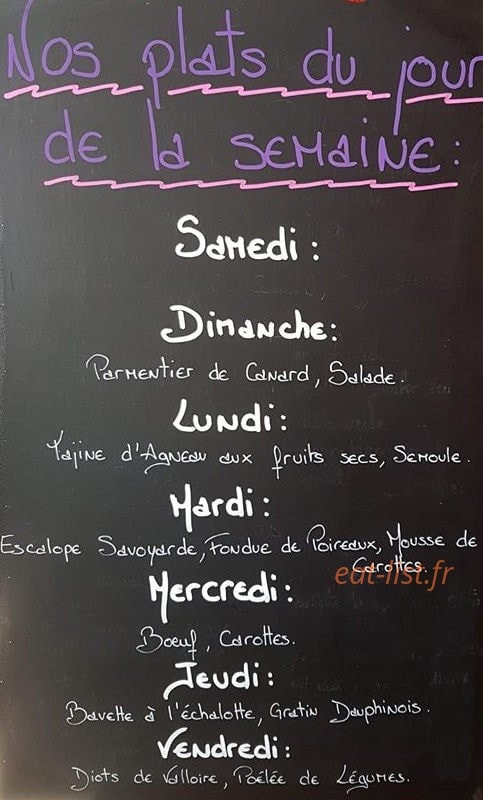 Nos plats du jour
de la semaine :
Samedi :
Dimanche :
Parmentier de Canard, Salade.
Lundi :
Tajine d'Agneau aux fruits secs, Semoule.
Mardi :
Escalope Savoyarde, Fondue de Poireaux, Mousse de
Carottes.
eat-list.fr
Mercredi :
Boeuf, Carottes.
Jeudi :
Bavette à l'échalotte, Gratin Dauphinois.
Vendredi :
Diots de Valloire, Poêlée de Légumes.